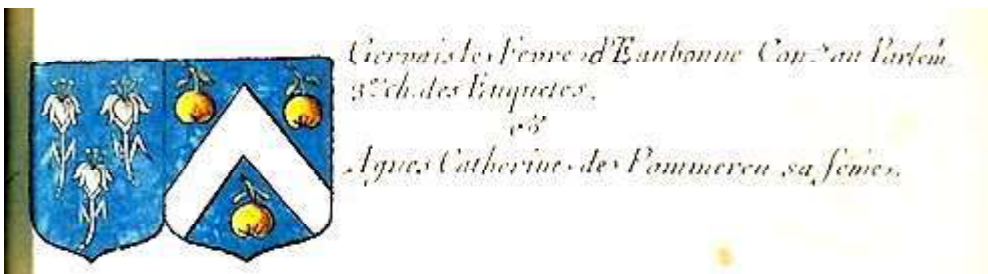 Gervais le Fevre d'Eaubonne Con.er au Parlem.
3.e ch. des Enquetes.
et
Agnes Catherine de Pommereu sa feme.